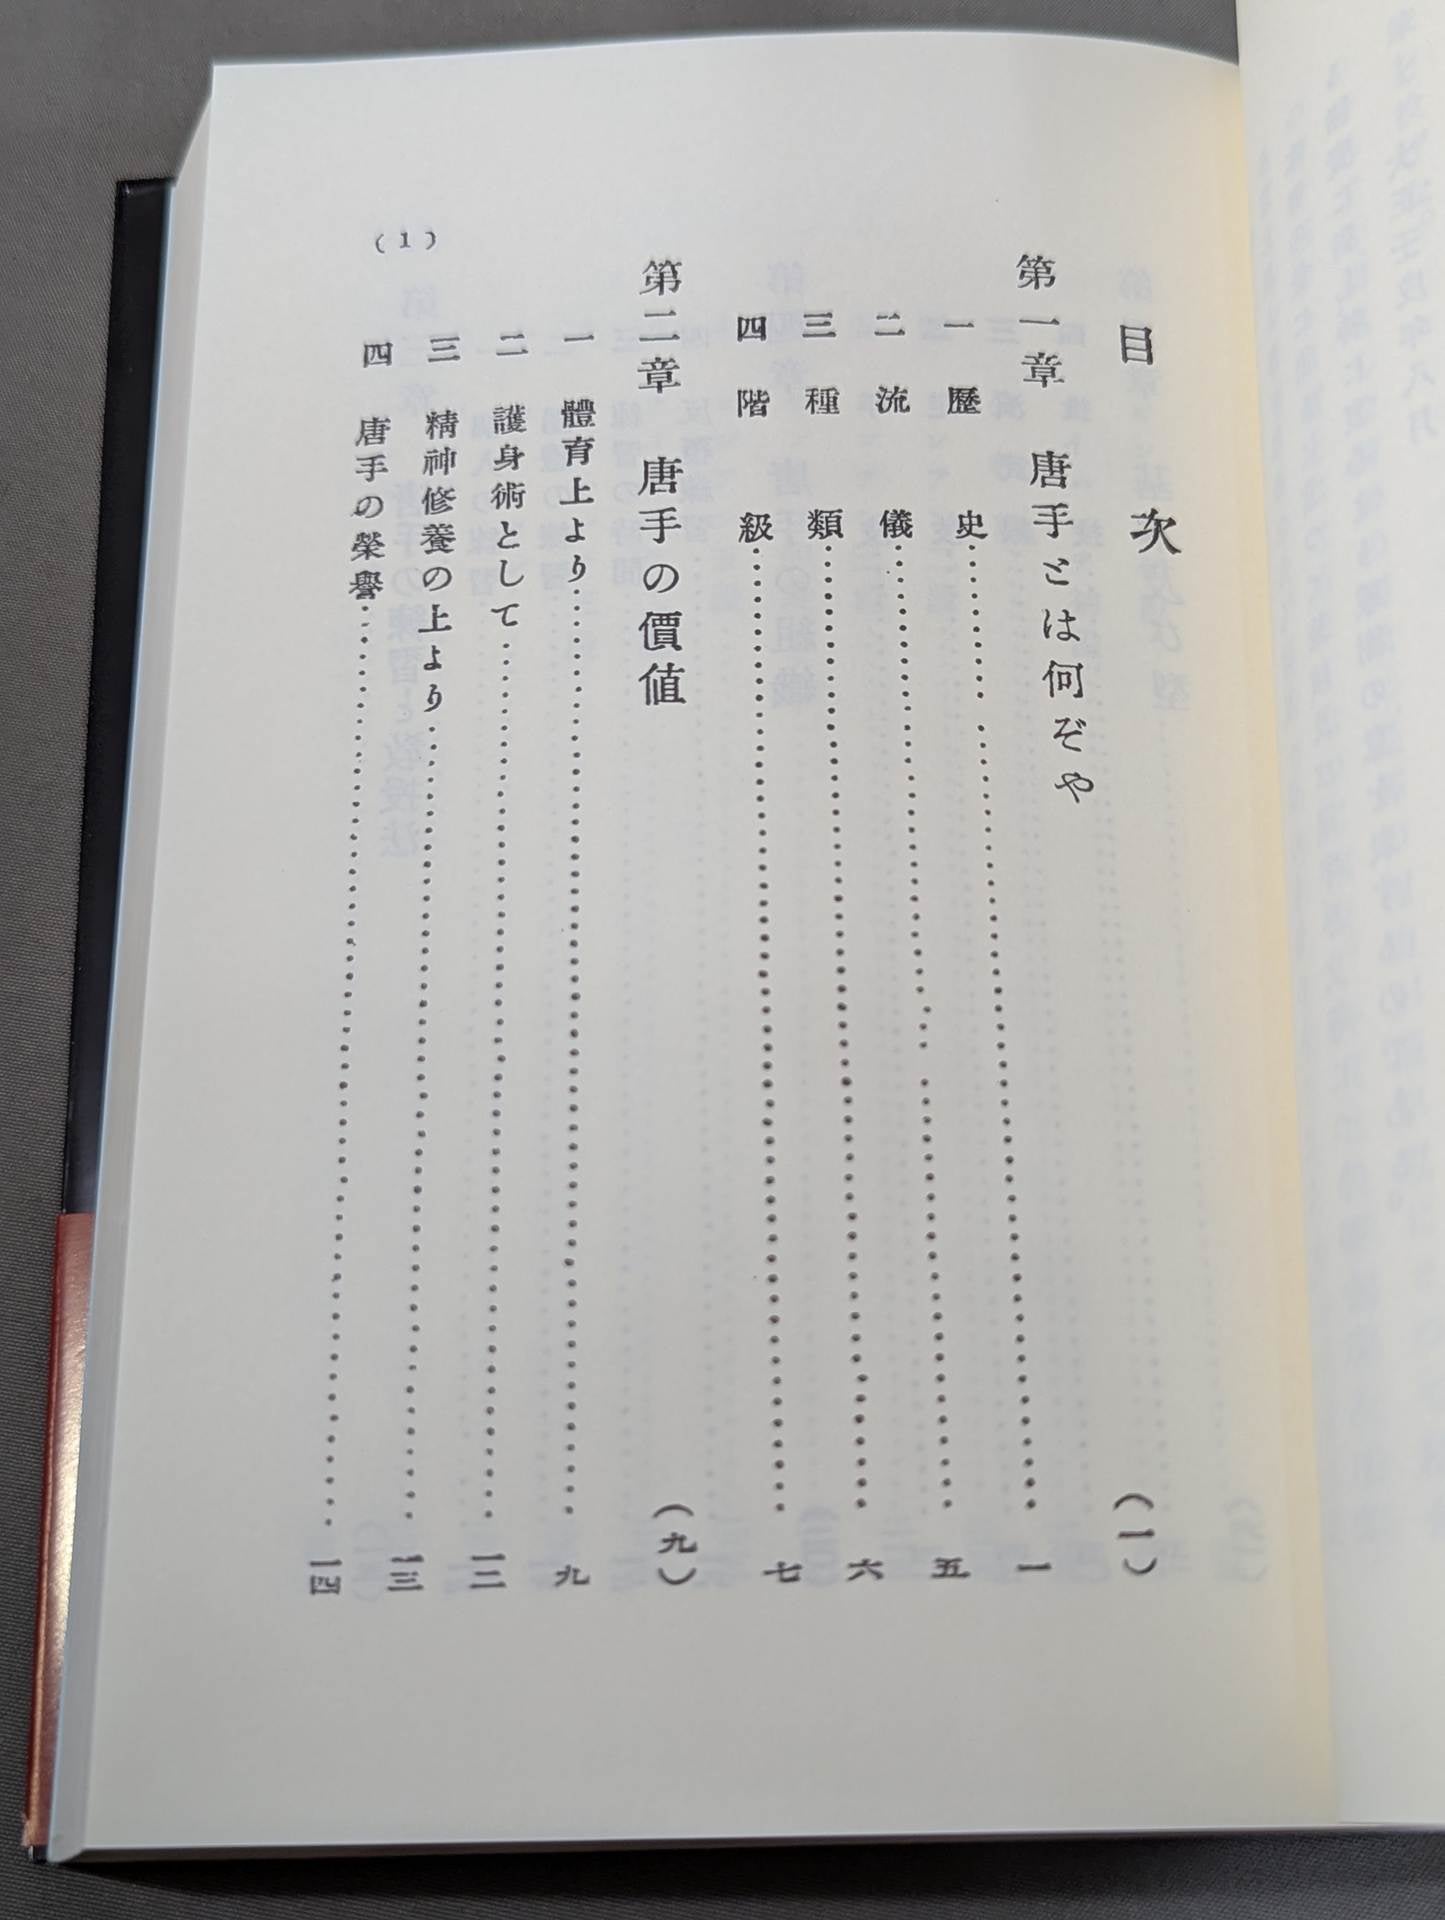 目次
第一章　唐手とは何ぞや（一）
一　歷史……一
二　流儀……五
三　種類……六
四　階級……七
第二章　唐手の價値（九）
一　體育上より……九
二　護身術として……一二
三　精神修養の上より……一三
四　唐手の榮譽……一四
(1)